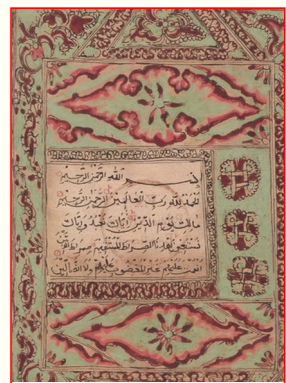 بسم الله الرحمن الرحيم
الحمد لله رب العالمين الرحمن الرحيم
مالك يوم الدين إياك نعبد وإياك
نستعين اهدنا الصراط المستقيم صراط الذين
أنعمت عليهم غير المغضوب عليهم ولا الضالين